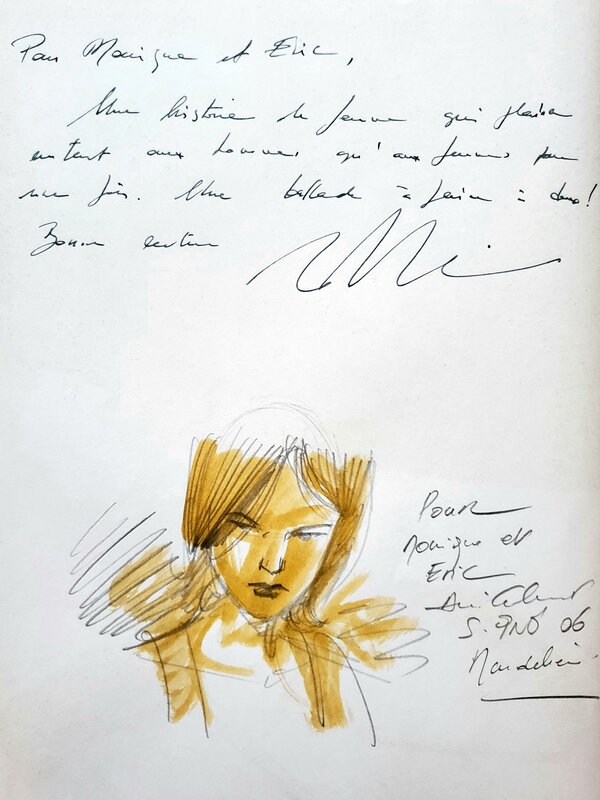 Pour Monique et Eric,
Une histoire de femme qui plaira
autant aux hommes qu'aux femmes pour
une fois. Une ballade à faire à deux!
Bonne lecture
Pour
Monique et
Eric
Amicalement
06